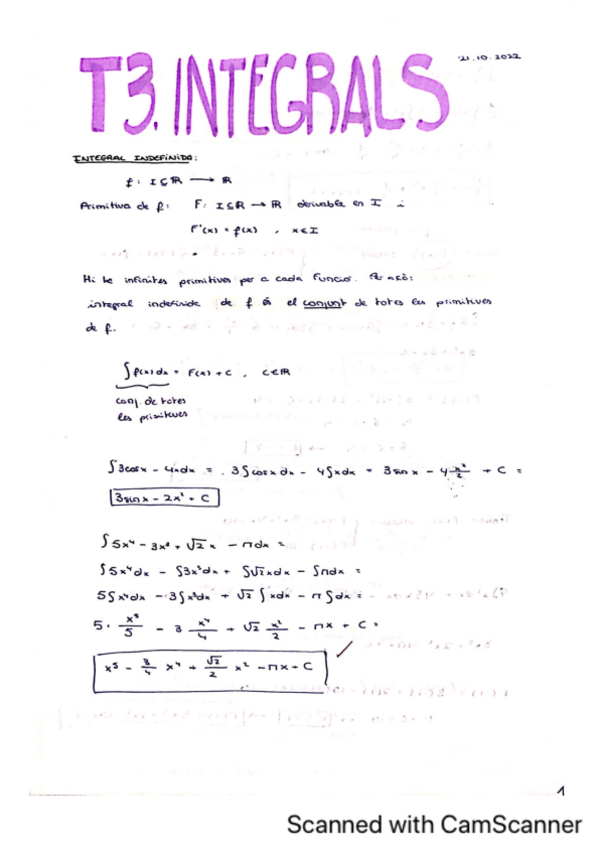 21.10.2022
T3. INTEGRALS
INTEGRAL INDEFINIDA:
f: I⊆ℝ → ℝ
Primitiva de f: F: I⊆ℝ → ℝ derivable en I i
F'(x) = f(x) , x∈I
Hi ha infinites primitives per a cada funció. Per açò:
integral indefinida de f és el conjunt de totes les primitives
de f.
∫f(x)dx = F(x) + C , C∈ℝ
conj. de totes
les primitives
∫3cosx - 4xdx = 3∫cosxdx - 4∫xdx = 3sinx - 4 x²/2 + C =
3sinx - 2x² + C
∫5x⁴ - 3x³ + √2 x - πdx =
∫5x⁴dx - ∫3x³dx + ∫√2xdx - ∫πdx =
5∫x⁴dx - 3∫x³dx + √2 ∫xdx - π∫dx =
5· x⁵/5 - 3 x⁴/4 + √2 x²/2 - πx + C =
x⁵ - 3/4 x⁴ + √2/2 x² - πx + C
1
Scanned with CamScanner